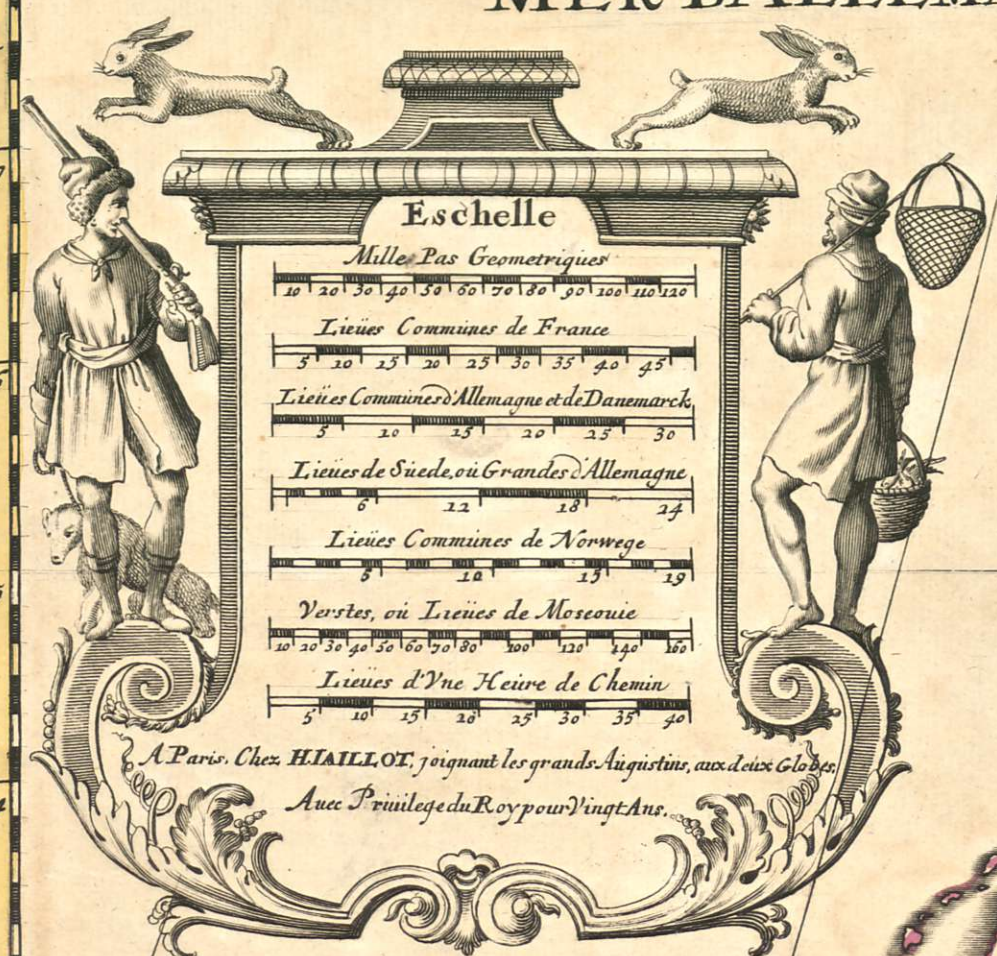 MER D'ALLEMA
Eschelle
Mille Pas Geometriques
10 20 30 40 50 60 70 80 90 100 110 120
Lieües Commūnes de France
5 10 15 20 25 30 35 40 45
Lieües Commūnes d'Allemagne et de Danemarck
5 10 15 20 25 30
Lieües de Süede, oü Grandes d'Allemagne
6 12 18 24
Lieües Commūnes de Norwege
5 10 15 19
Verstes, oü Lieües de Moscouie
10 20 30 40 50 60 70 80 100 120 140 160
Lieües d'Vne Heüre de Chemin
5 10 15 20 25 30 35 40
A Paris. Chez H.IAILLOT, joignant les grands Augüstins, aux deüx Globes.
Auec Priüilege du Roy pour Vingt Ans.